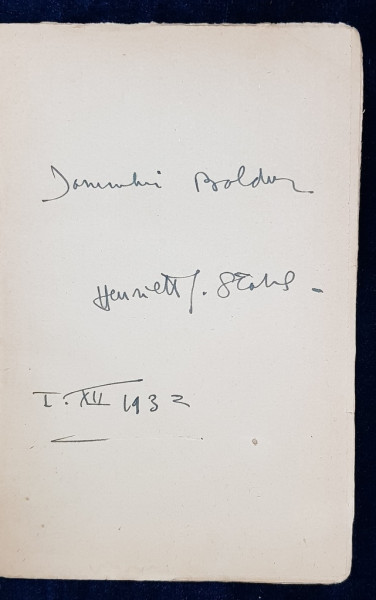 Domnului Baldur
Henriette Y. Stahl -
I. XII 1932